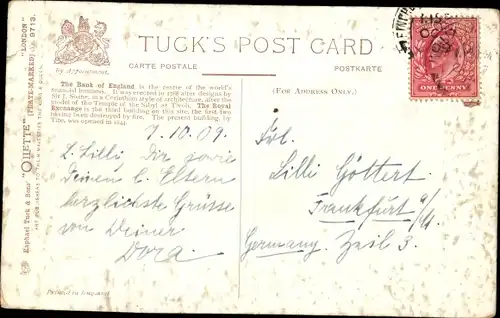 TUCK'S POST CARD
CARTE POSTALE
POSTKARTE
by Appointment.
(FOR ADDRESS ONLY.)
The Bank of England is the centre of the world's
financial business. It was erected in 1788 after designs by
Sir J. Soane, in a Corinthian style of architecture, after the
model of the Temple of the Sibyl at Tivoli. The Royal
Exchange is the third building on this site, the first two
having been destroyed by fire. The present building, by
Tite, was opened in 1844.
7.10.09.
L. Lilli Dir sowie
Deinen l. Eltern
herzlichste Grüsse
von Deiner
Dora.
Frl.
Lilli Göttert
Frankfurt a/M.
Germany. Zeil 3.
ONE PENNY
Raphael Tuck & Sons' "OILETTE" [TRADE-MARKED] "LONDON" 9713.
ART PUBLISHERS TO THEIR MAJESTIES THE KING & QUEEN
Printed in England